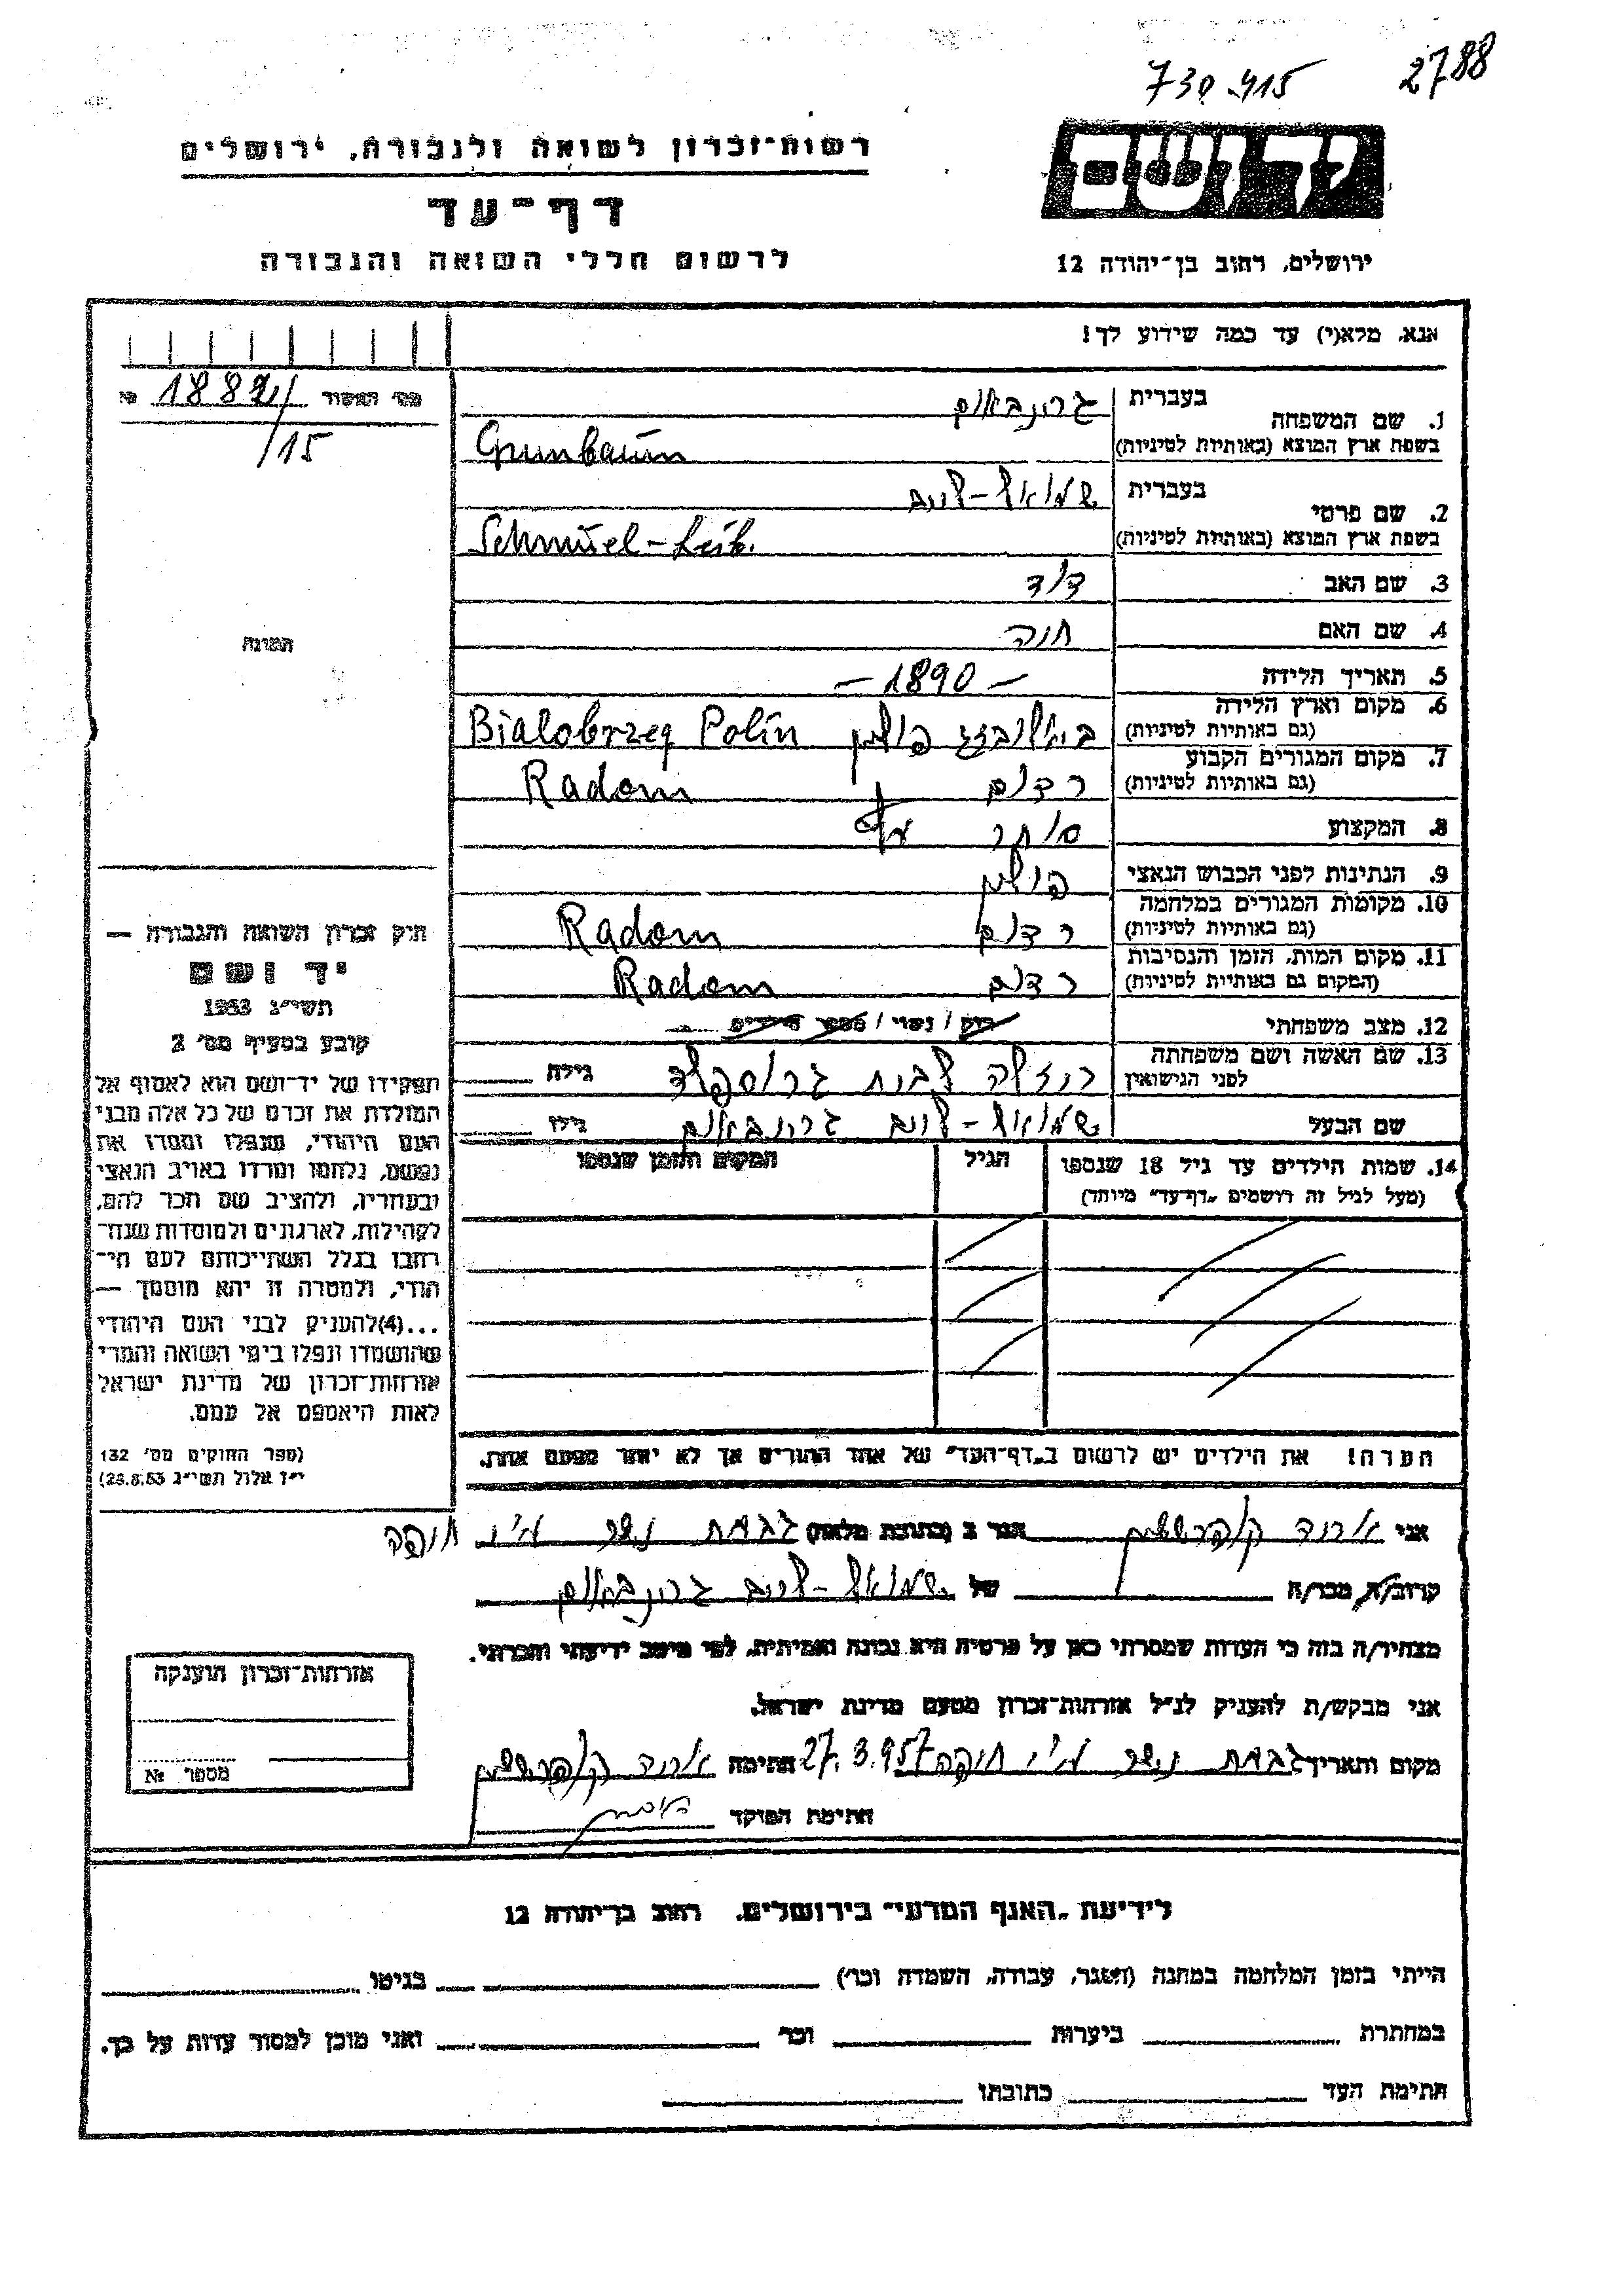 730.415 2788
רשות־זכרון לשואה ולגבורה, ירושלים
יד ושם
דף־עד
לרשום חללי השואה והגבורה
ירושלים, רחוב בן־יהודה 12
אנא, מלא(י) עד כמה שידוע לך!
מס׳ האסור 1882/ №
/15
1. שם המשפחה
בעברית גרונבאום
בשפת ארץ המוצא (באותיות לטיניות) Grunbaum
2. שם פרטי
בעברית שמואל-לייב
בשפת ארץ המוצא (באותיות לטיניות) Schmuel-Leib.
3. שם האב דוד
4. שם האם חנה
5. תאריך הלידה – 1890 –
6. מקום וארץ הלידה
(גם באותיות לטיניות) פולין Bialobrzeg Polin
7. מקום המגורים הקבוע
(גם באותיות לטיניות) רדום Radom
8. המקצוע סוחר
9. הנתינות לפני הכבוש הנאצי פולין
10. מקומות המגורים במלחמה
(גם באותיות לטיניות) רדום Radom
11. מקום המות, הזמן והנסיבות
(המקום גם באותיות לטיניות) רדום Radom
12. מצב משפחתי רווק / נשוי /
13. שם האשה ושם משפחתה
לפני הנישואין לבית גילה
שם הבעל שמואל-לייב גרונבאום גילו
14. שמות הילדים עד גיל 18 שנספו הגיל המקום והזמן שנספו
(מעל לגיל זה רושמים „דף־עד״ מיוחד)
הערה! את הילדים יש לרשום ב„דף־העד״ של אחד ההורים אך לא יותר מפעם אחת.
התמונה
חוק זכרון השואה והגבורה —
יד ושם
תשי״ג 1953
קובע בסעיף מס׳ 2
תפקידו של יד־ושם הוא לאסוף אל
המולדת את זכרם של כל אלה מבני
העם היהודי, שנפלו ומסרו את
נפשם, נלחמו ומרדו באויב הנאצי
ובעוזריו, ולהציב שם וזכר להם,
לקהילות, לארגונים ולמוסדות שנח־
רבו בגלל השתייכותם לעם הי־
הודי, ולמטרה זו יהא מוסמך —
...(4)להעניק לבני העם היהודי
שהושמדו ונפלו בימי השואה והמרי
אזרחות־זכרון של מדינת ישראל
לאות היאספם אל עמם.
(ספר החוקים מס׳ 132
י״ז אלול תשי״ג 28.8.53)
אני אהוד הגר ב (כתובת מלאה) גבעת נשר ע״י חיפה
קרוב/ה מכר/ה של שמואל-לייב גרונבאום
מצהיר/ה בזה כי העדות שמסרתי כאן על פרטיה היא נכונה ואמיתית, לפי מיטב ידיעתי והכרתי.
אני מבקש/ת להעניק לנ״ל אזרחות־זכרון מטעם מדינת ישראל.
מקום ותאריך גבעת נשר ע״י חיפה 27.3.957 חתימה
חתימת הפוקד
אזרחות־זכרון הוענקה
מספר №
לידיעת „האגף המדעי״ בירושלים, רחוב בן־יהודה 12
הייתי בזמן המלחמה במחנה (הסגר, עבודה, השמדה וכו׳) בגיטו
במחתרת ביערות וכו׳ ואני מוכן למסור עדות על כך.
חתימת העד כתובתו